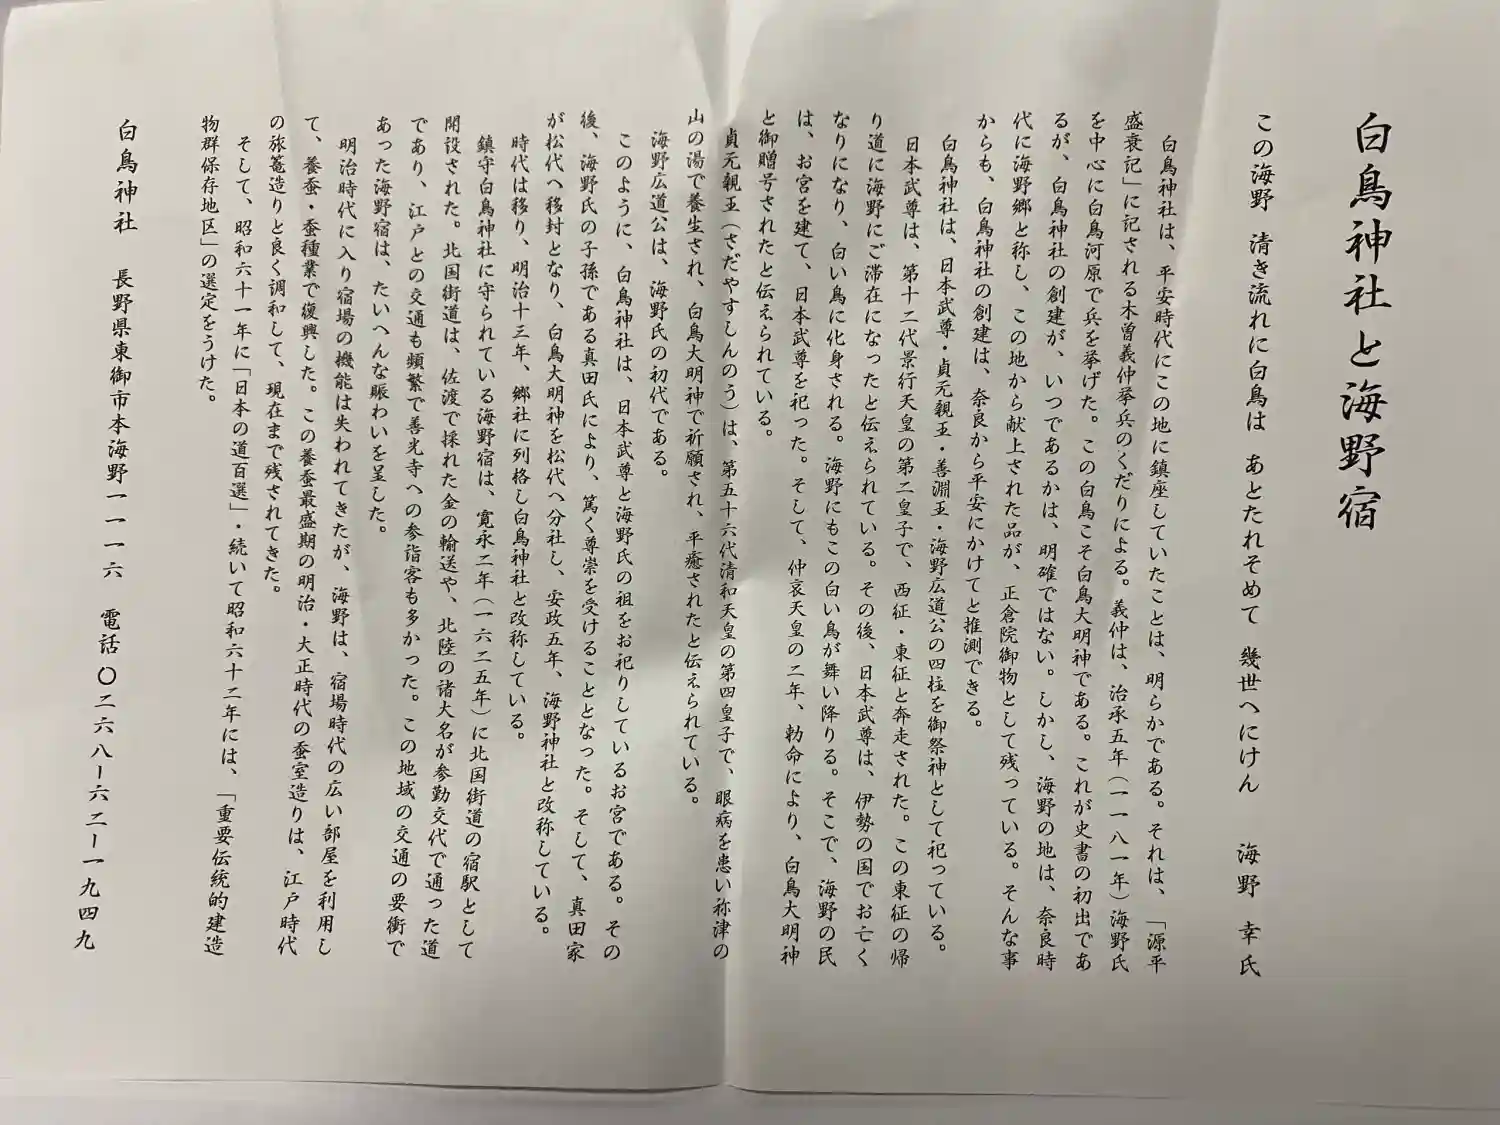 白鳥神社と海野宿
この海野 清き流れに白鳥は あとたれそめて 幾世へにけん 海野 幸氏
白鳥神社は、平安時代にこの地に鎮座していたことは、明らかである。それは、「源平
盛衰記」に記される木曽義仲挙兵のくだりによる。義仲は、治承五年(一一八一年)海野氏
を中心に白鳥河原で兵を挙げた。この白鳥こそ白鳥大明神である。これが史書の初出であ
るが、白鳥神社の創建が、いつであるかは、明確ではない。しかし、海野の地は、奈良時
代に海野郷と称し、この地から献上された品が、正倉院御物として残っている。そんな事
からも、白鳥神社の創建は、奈良から平安にかけてと推測できる。
白鳥神社は、日本武尊・貞元親王・善淵王・海野広道公の四柱を御祭神として祀っている。
日本武尊は、第十二代景行天皇の第二皇子で、西征・東征と奔走された。この東征の帰
り道に海野にご滞在になったと伝えられている。その後、日本武尊は、伊勢の国でお亡く
なりになり、白い鳥に化身される。海野にもこの白い鳥が舞い降りる。そこで、海野の民
は、お宮を建て、日本武尊を祀った。そして、仲哀天皇の二年、勅命により、白鳥大明神
と御贈号されたと伝えられている。
貞元親王(さだやすしんのう)は、第五十六代清和天皇の第四皇子で、眼病を患い祢津の
山の湯で養生され、白鳥大明神で祈願され、平癒されたと伝えられている。
海野広道公は、海野氏の初代である。
このように、白鳥神社は、日本武尊と海野氏の祖をお祀りしているお宮である。その
後、海野氏の子孫である真田氏により、篤く尊崇を受けることとなった。そして、真田家
が松代へ移封となり、白鳥大明神を松代へ分社し、安政五年、海野神社と改称している。
時代は移り、明治十三年、郷社に列格し白鳥神社と改称している。
鎮守白鳥神社に守られている海野宿は、寛永二年(一六二五年)に北国街道の宿駅として
開設された。北国街道は、佐渡で採れた金の輸送や、北陸の諸大名が参勤交代で通った道
であり、江戸との交通も頻繁で善光寺への参詣客も多かった。この地域の交通の要衝で
あった海野宿は、たいへんな賑わいを呈した。
明治時代に入り宿場の機能は失われてきたが、海野は、宿場時代の広い部屋を利用し
て、養蚕・蚕種業で復興した。この養蚕最盛期の明治・大正時代の蚕室造りは、江戸時代
の旅篭造りと良く調和して、現在まで残されてきた。
そして、昭和六十一年に「日本の道百選」・続いて昭和六十二年には、「重要伝統的建造
物群保存地区」の選定をうけた。
白鳥神社 長野県東御市本海野一一一六 電話〇二六八ー六二ー一九四九